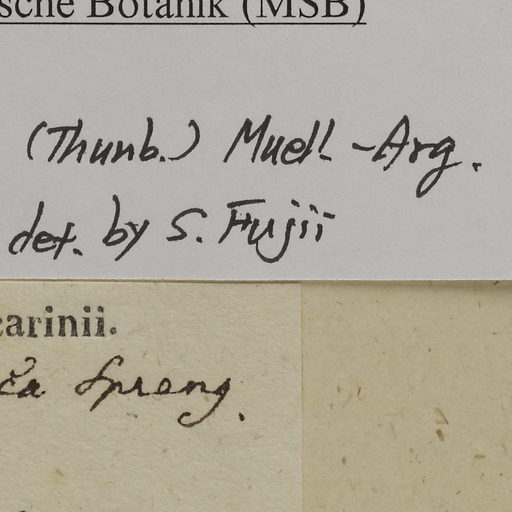 sche Botanik (MSB)
(Thunb.) Muell-Arg.
det. by S. Fujii
carinii.
ca Spreng.